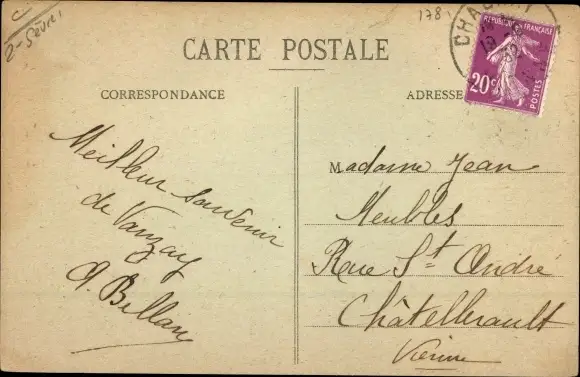 2-Sèvres
178
CARTE POSTALE
CORRESPONDANCE
ADRESSE
RÉPUBLIQUE FRANÇAISE
20c
POSTES
Meilleur souvenir
de Vanzay
Madame Jean
Meubles
Rue St André
Châtellerault
Vienne